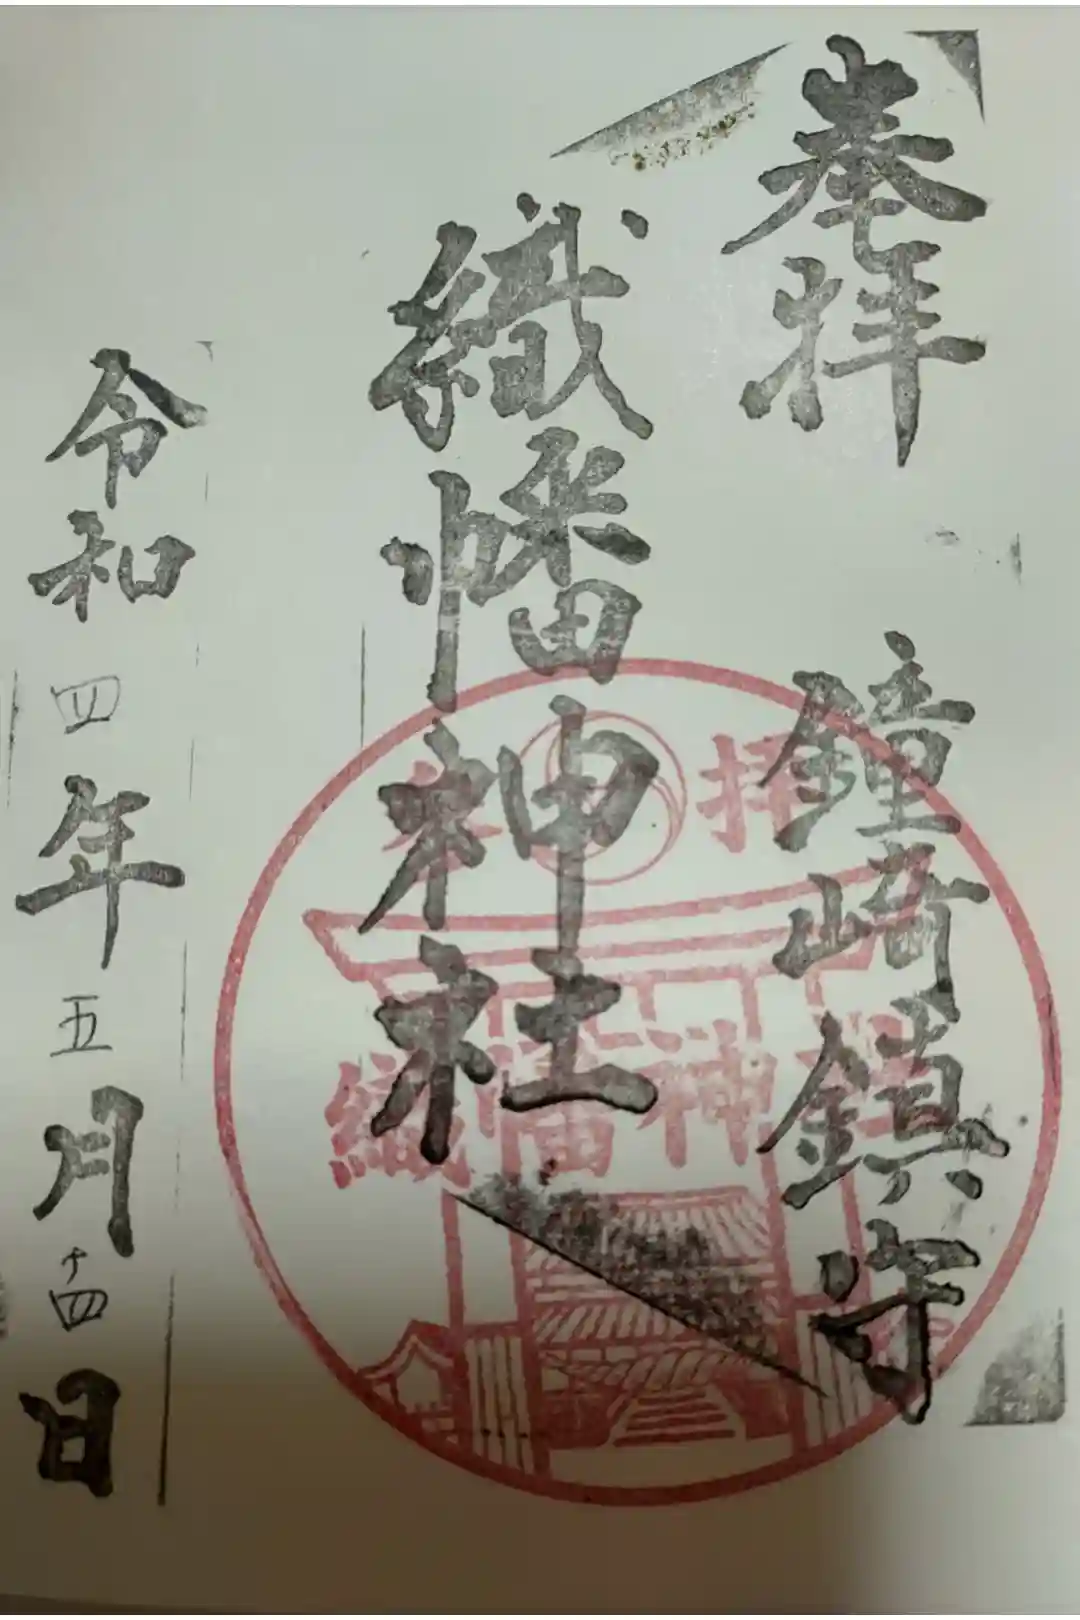 奉拝
鐘崎鎮守
織幡神社
奉拝
織幡神社
令和四年五月十四日